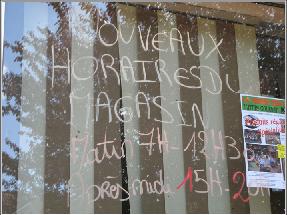 NOUVEAUX
HORAIRES DU
MAGASIN
Matin 7H-12H3
Après midi 15H-20